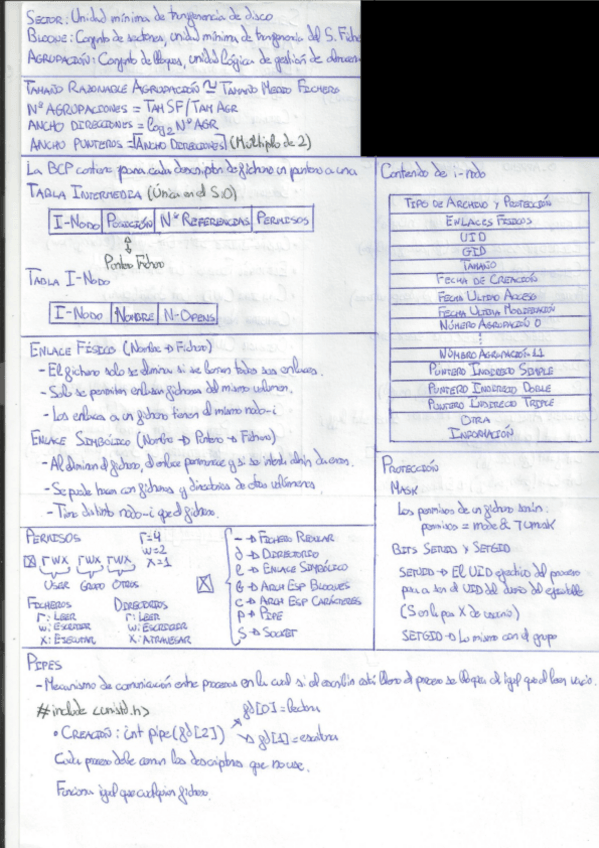 SECTOR: Unidad mínima de transferencia de disco
BLOQUE: Conjunto de sectores, unidad mínima de transferencia del S. Fiche
AGRUPACIÓN: Conjunto de bloques, unidad lógica de gestión de almacen
TAMAÑO RAZONABLE AGRUPACIÓN ≃ TAMAÑO MEDIO FICHERO
Nº AGRUPACIONES = TAM SF/TAM AGR
ANCHO DIRECCIONES = log2 Nº AGR
ANCHO PUNTEROS = ⌈ANCHO DIRECCIONES⌉ (Múltiplo de 2)
La BCP contiene para cada descriptor de fichero un puntero a una
TABLA INTERMEDIA (Única en el S.O)
I-NODO | POSICIÓN | Nº REFERENCIAS | PERMISOS
Puntero Fichero
TABLA I-NODO
I-NODO | NOMBRE | N-OPENS
Contenido de i-nodo
TIPO DE ARCHIVO Y PROTECCIÓN
ENLACES FÍSICOS
UID
GID
TAMAÑO
FECHA DE CREACIÓN
FECHA ÚLTIMO ACCESO
FECHA ÚLTIMA MODIFICACIÓN
NÚMERO AGRUPACIÓN 0
⋮
NÚMERO AGRUPACIÓN 11
PUNTERO INDIRECTO SIMPLE
PUNTERO INDIRECTO DOBLE
PUNTERO INDIRECTO TRIPLE
OTRA
INFORMACIÓN
ENLACE FÍSICO (Nombre → Fichero)
- El fichero solo se elimina si se borran todos sus enlaces.
- Solo se permiten enlazar ficheros del mismo volumen.
- Los enlaces a un fichero tienen el mismo nodo-i
ENLACE SIMBÓLICO (Nombre → Puntero → Fichero)
- Al eliminar el fichero, el enlace permanece y si se intenta abrir da error.
- Se puede hacer con ficheros y directorios de otros volúmenes.
- Tiene distinto nodo-i que el fichero.
PROTECCIÓN
MASK
Los permisos de un fichero serán:
permisos = mode & ¬umask
BITS SETUID Y SETGID
SETUID → El UID efectivo del proceso
pasa a ser el UID del dueño del ejecutable
(S en lugar X de usuario)
SETGID → Lo mismo con el grupo
PERMISOS r=4
w=2
X=1
rwx rwx rwx
USER GRUPO OTROS
FICHEROS DIRECTORIOS
r: LEER r: LEER
w: ESCRIBIR w: ESCRIBIR
X: EJECUTAR X: ATRAVESAR
- → FICHERO REGULAR
d → DIRECTORIO
l → ENLACE SIMBÓLICO
b → ARCH ESP BLOQUES
c → ARCH ESP CARÁCTERES
P → PIPE
S → SOCKET
PIPES
- Mecanismo de comunicación entre procesos en la cual si al escribir está lleno el proceso se bloquea al igual que al leer vacío.
#include <unistd.h>
• CREACIÓN: int pipe(fd[2])
fd[0] = lectura
fd[1] = escritura
Cada proceso debe cerrar los descriptores que no use.
Funciona igual que cualquier fichero.